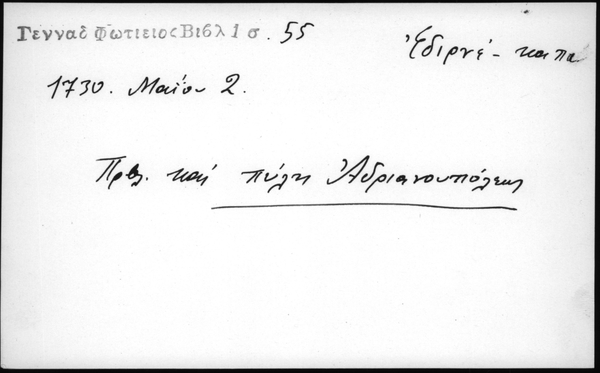 Γενναδ Φωτιειος Βιβλ 1 σ. 55
Ἐδιρνέ - καπα
1730. Μαΐου 2.
Πρβλ. καί πύλη Ἀδριανουπόλεως